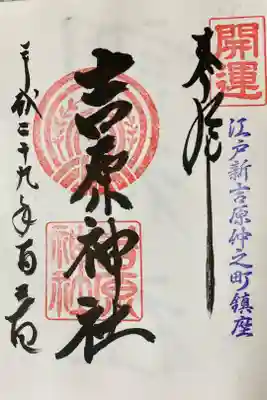 開運
奉拝
江戸新吉原仲之町鎮座
吉原神社
吉原
神社
平成二十九年